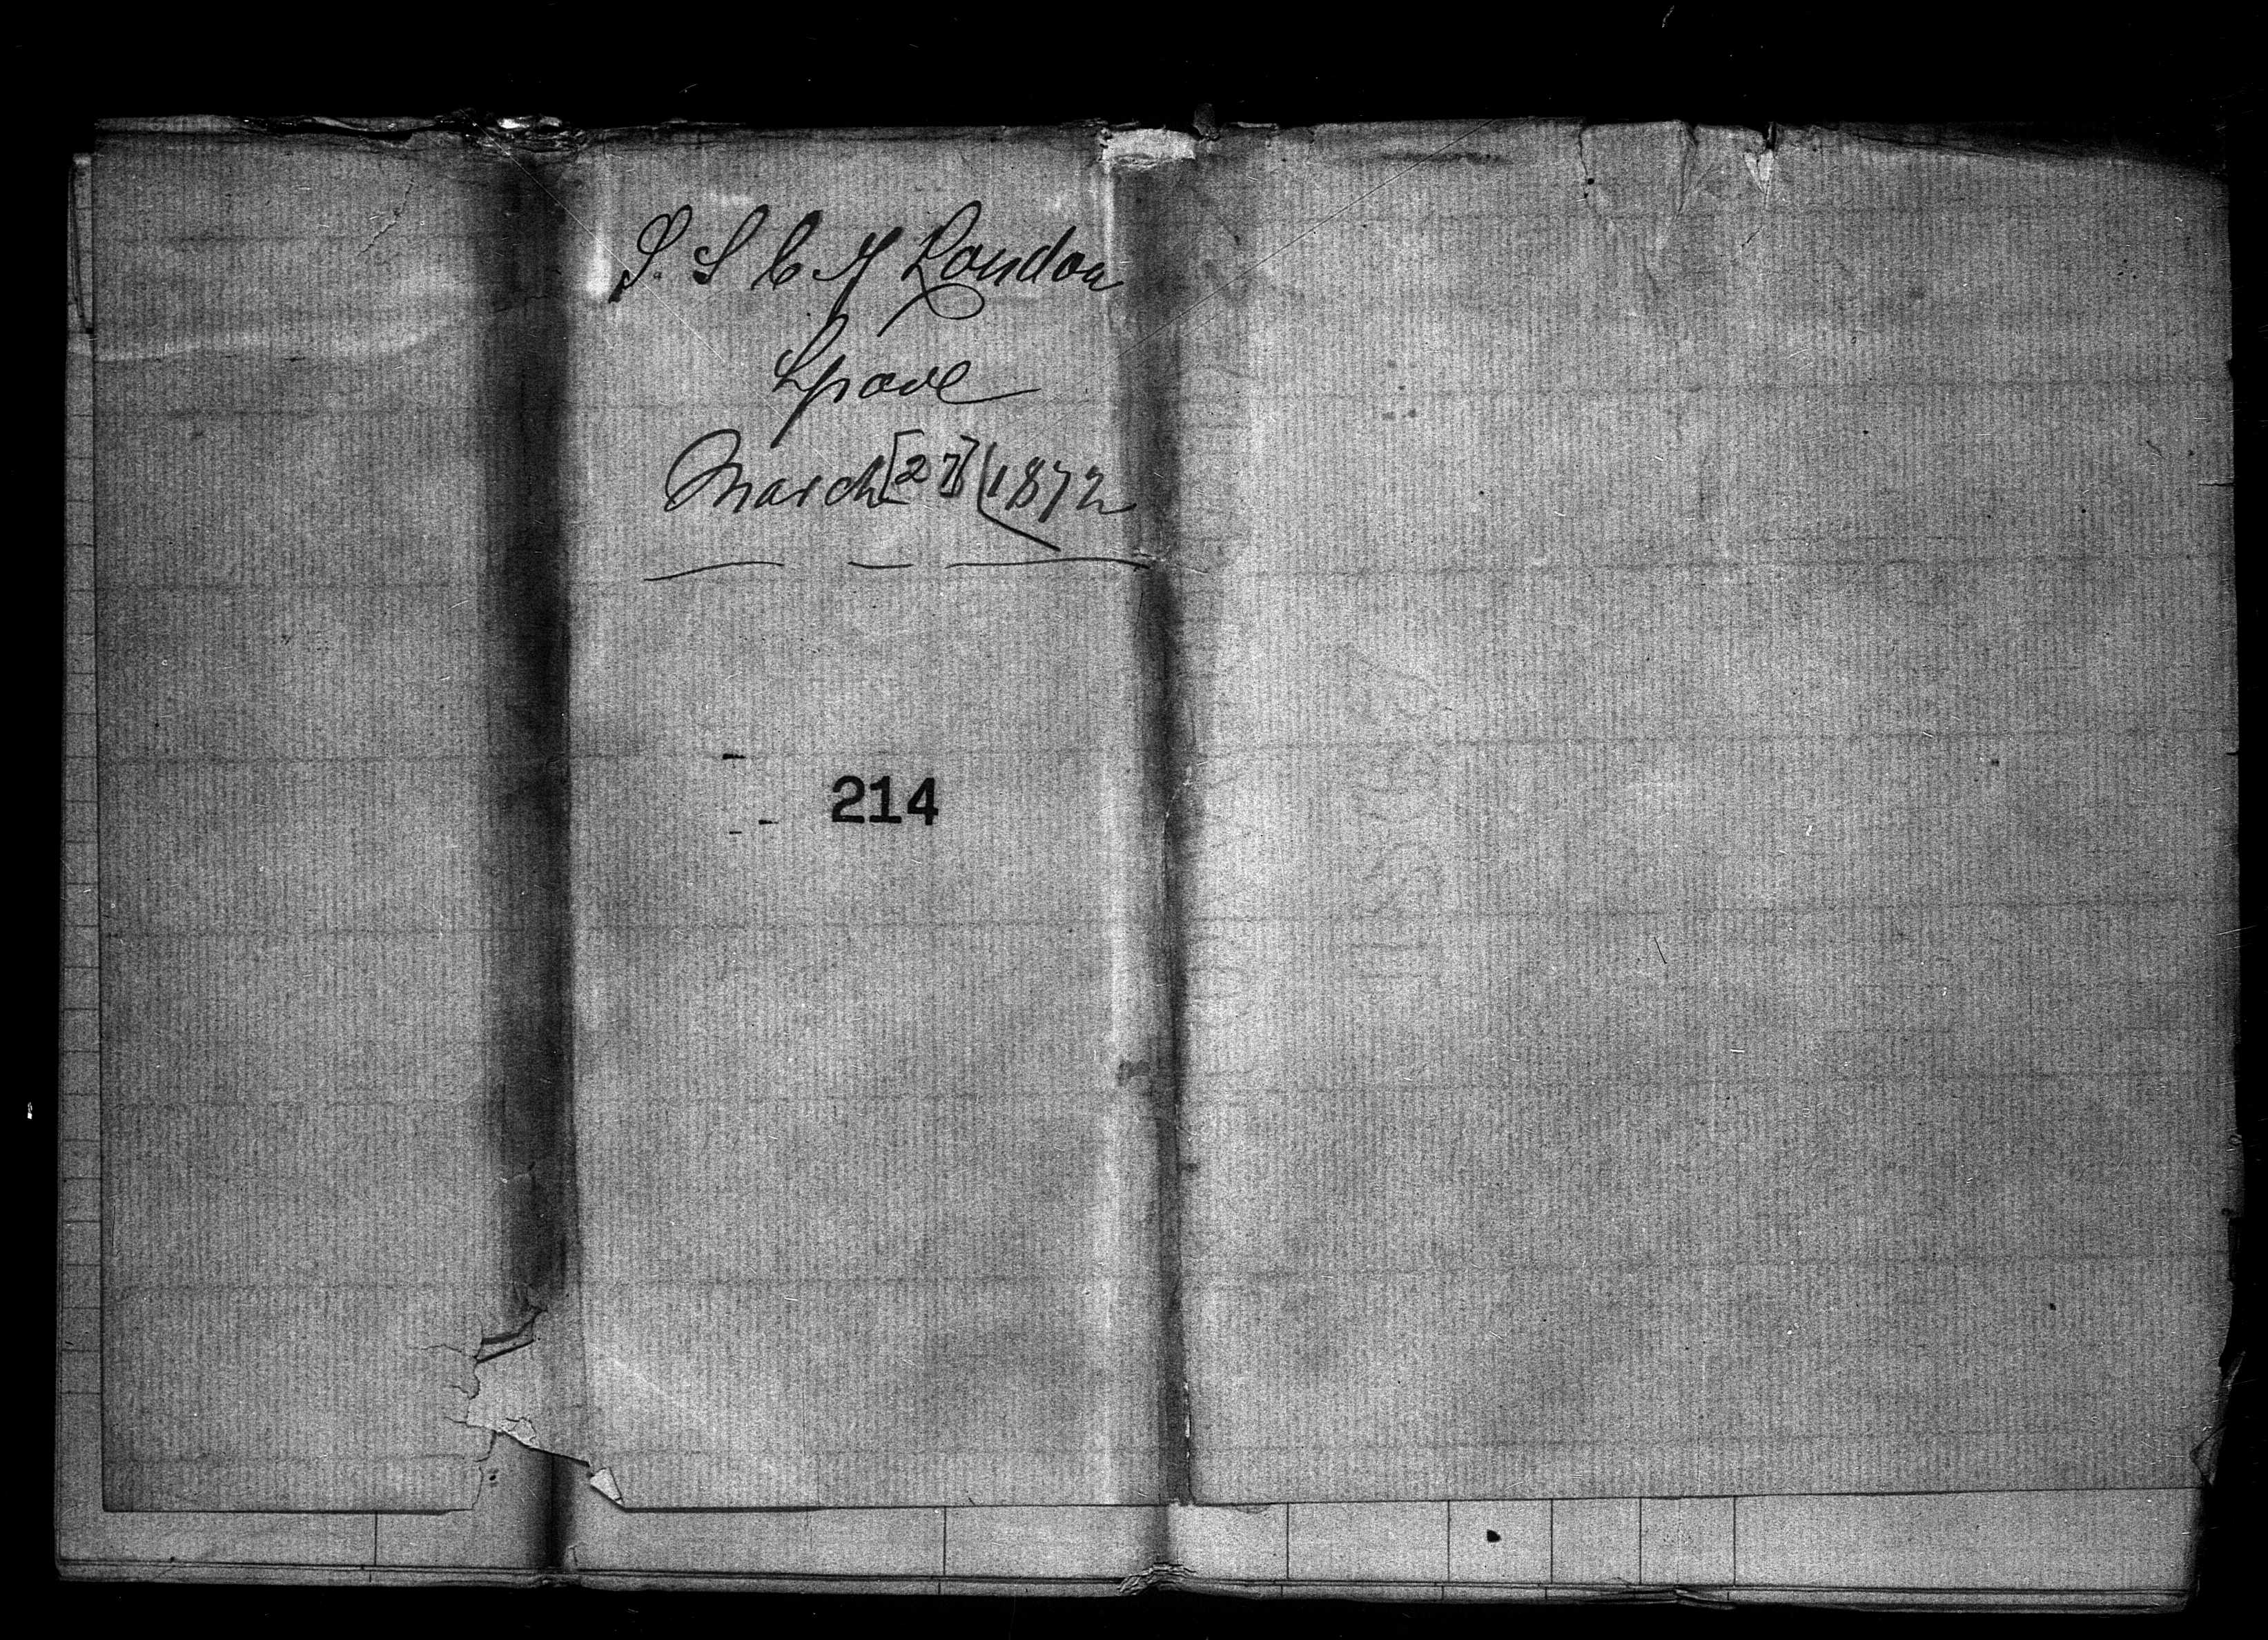 S. S. City London
Lpool
March [27] 1872
214